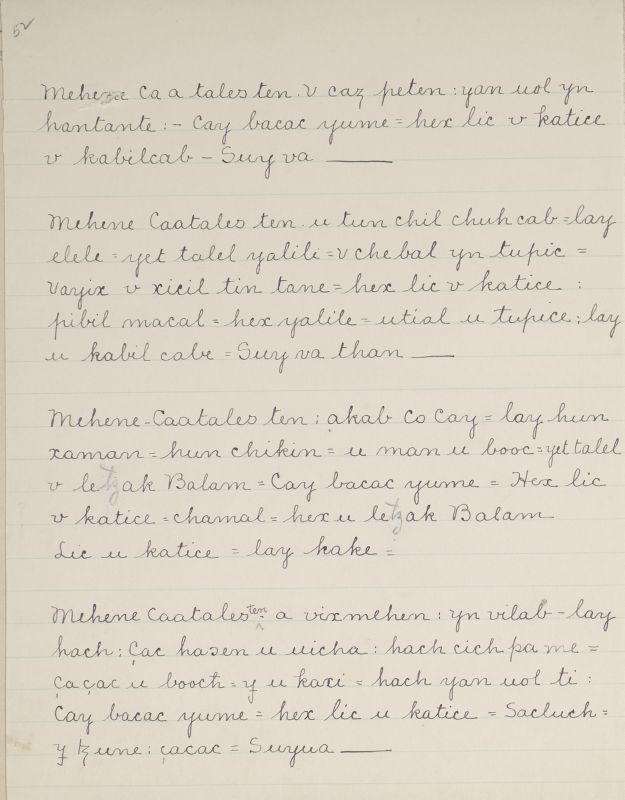 52
Mehene ca a tales ten. V caz peten : yan uol yn
hantante : - Cay bacac yume = hex lic v katice
v kabilcab - Suy va ———
Mehene Caatales ten. u tun chil chuh cab = lay
elele = yet talel yalili = v che bal yn tupic =
Vayix v xicil tin tane = hex lic v katice :
pibil macal = hex yalile = utial u tupice ; lay
u kabil cabe = Suy va than ———
Mehene - Caatales ten : akab Co Cay = lay hun
xaman = hun chikin = u man u booc = yet talel
v letzak Balam = Cay bacac yume = Hex lic
v katice = chamal = hex u letzak Balam
Lic u katice = lay kake =
Mehene Caatales ten : a vixmehen : yn vilab - lay
hach : Çac hasen u uicha : hach cich pa me =
çaçac u booch = y u kaxi = hach yan uol ti :
Cay bacac yume = hex lic u katice = Sacluch =
y tzune : çacac = Suyua ———